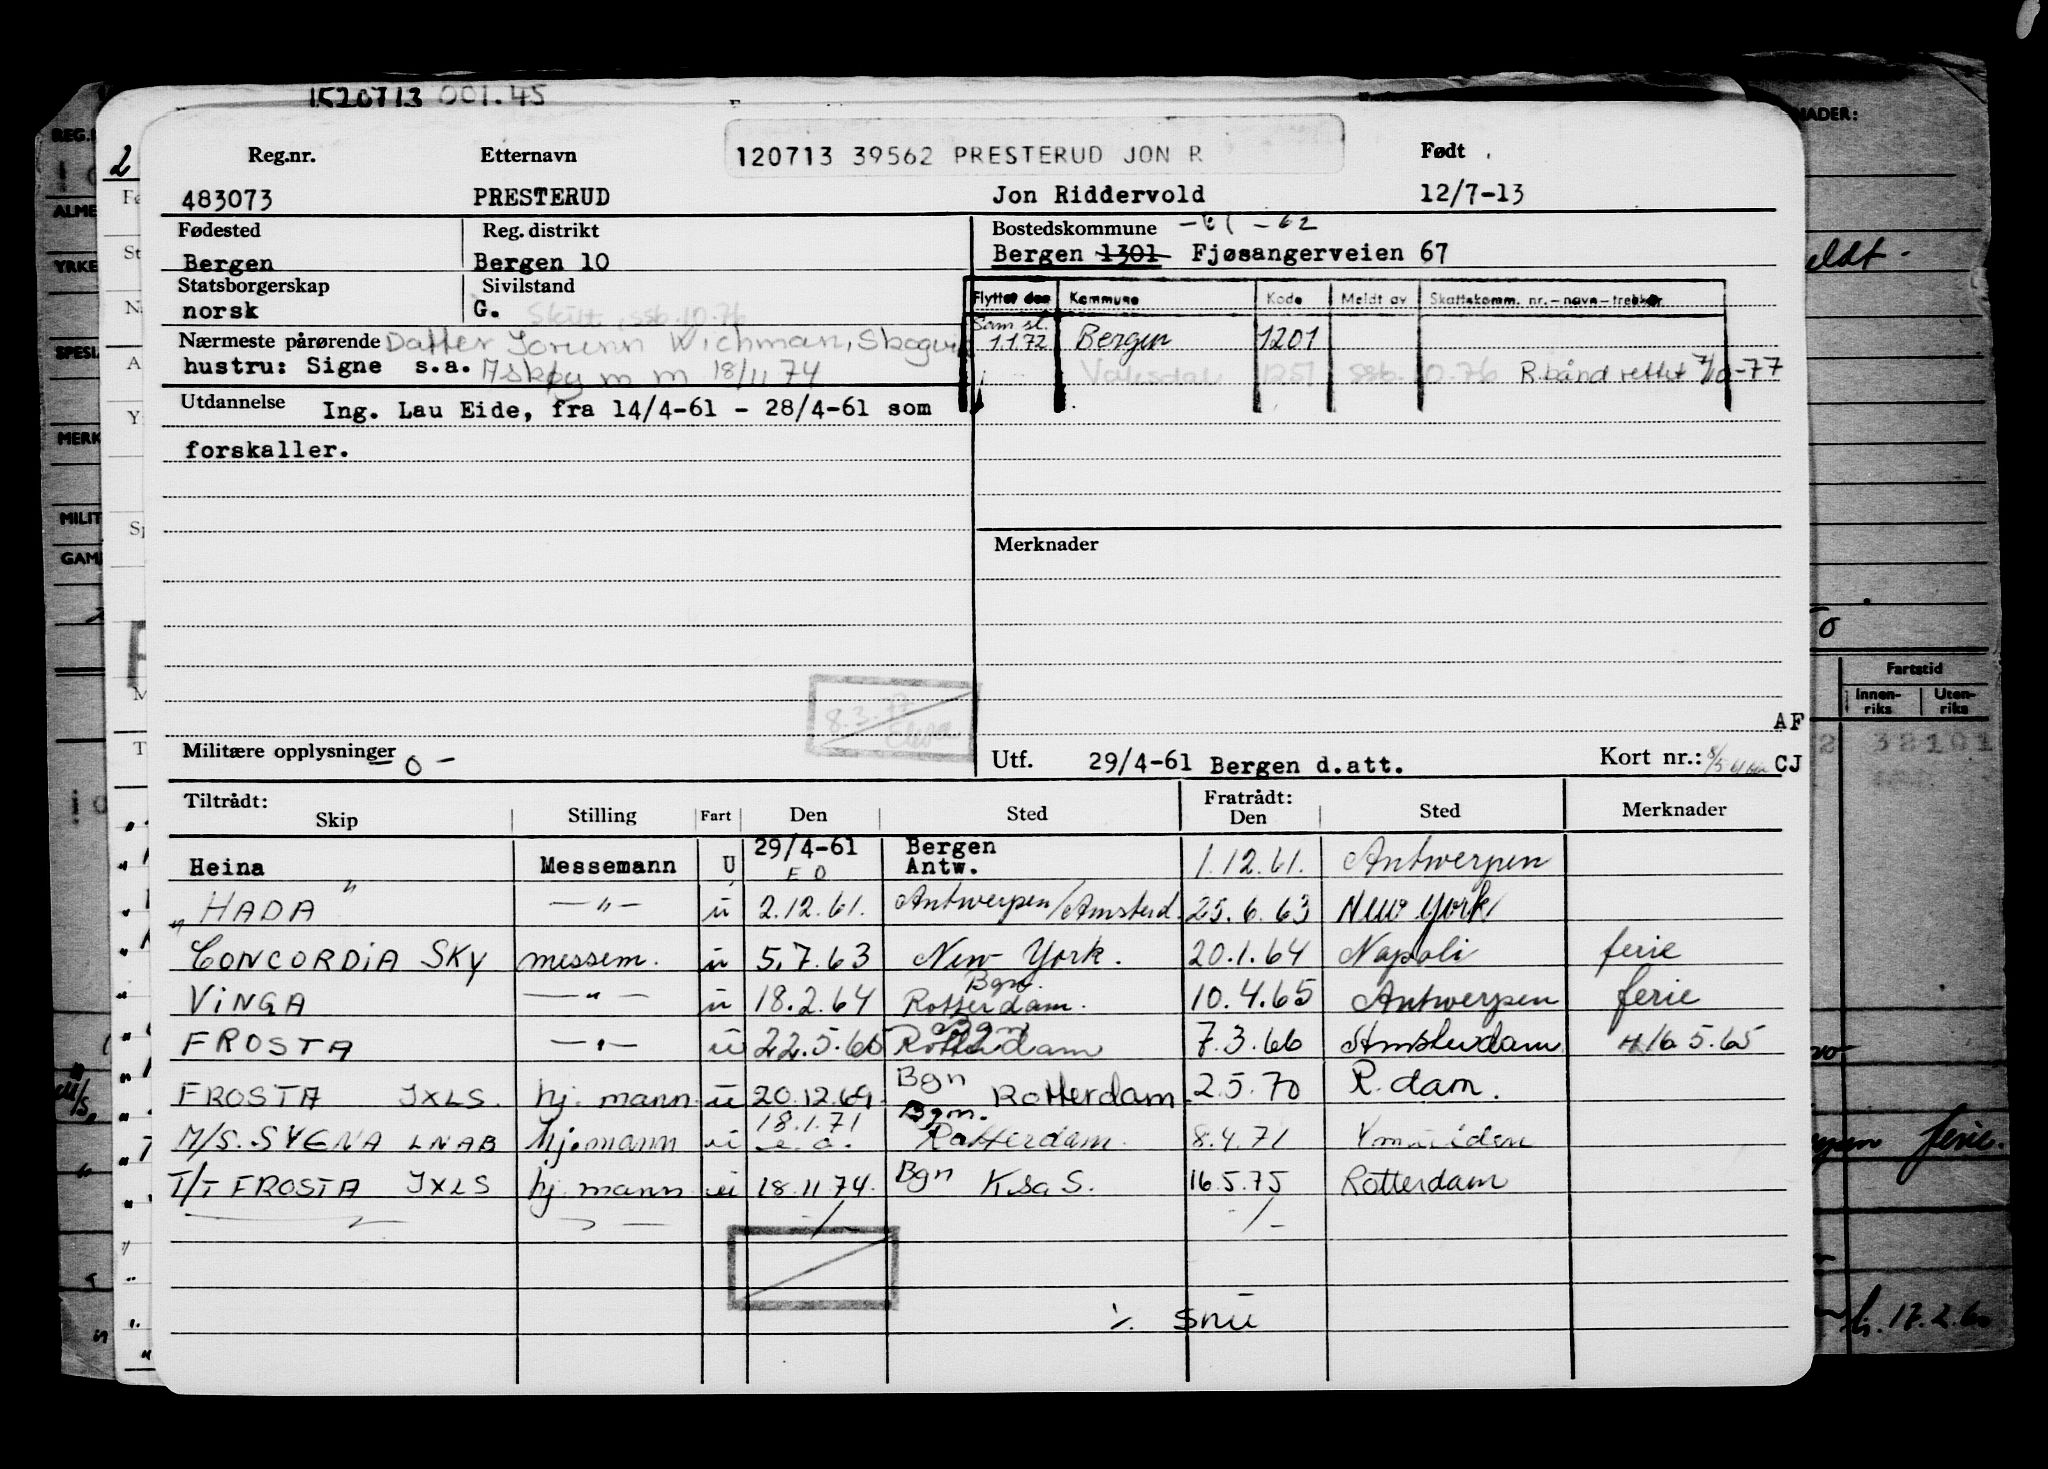 1520713 001.45
2
Reg.nr. Etternavn 120713 39562 PRESTERUD JON R Født
483073 PRESTERUD Jon Riddervold 12/7-13
Fødested Reg. distrikt Bostedskommune
Bergen Bergen 10 Bergen 1301 Fjøsangerveien 67
Statsborgerskap Sivilstand
norsk G. Skilt, ssb. 10.76
Flyttet den Kommune Kode Meldt av Skattekomm. nr.-navn-trekknr.
Sam sl.
1.1.72 Bergen 1201
Nærmeste pårørende Datter Jorunn Wichman,
hustru: Signe s.a. Askøy m m 18/11 74
1251 ssb. 10.76 R.bånd rettet 7/10-77
Utdannelse Ing. Lau Eide, fra 14/4-61 - 28/4-61 som
forskaller.
Merknader
8.3.77
AF
Militære opplysninger - 0 -
Utf. 29/4-61 Bergen d.att. Kort nr.: CJ
Tiltrådt: Fratrådt:
Skip Stilling Fart Den Sted Den Sted Merknader
Heina Messemann U 29/4-61 Bergen Antw. 1.12.61. Antwerpen
" HADA " —"— u 2.12.61. Antwerpen/Amsterd. 25.6.63 New York
CONCORDIA SKY messem. u 5.7.63 New York. 20.1.64 Napoli ferie
VINGA —"— u 18.2.64 Bgn. Rotterdam. 10.4.65 Antwerpen ferie
FROSTA —"— u 22.5.65 Bgn Rotterdam 7.3.66 Amsterdam 16.5.65
FROSTA JXLS. hj. mann u 20.12.69. Bgn Rotterdam 2.5.70 R.dam.
M/S. SVENA LNAB hj.mann u 18.1.71 Bgn. Rotterdam. 8.4.71 Ymuiden
T/T FROSTA JXLS hj. mann u 18.11.74. Bgn K.sa S. 16.5.75 Rotterdam
-/- -/-
./. snu
REG.
ALME
YRKE
SPESIA
MERK
MILIT
GAM
NADER:
eldt.
Fartstid
Innen-riks Uten-riks
38101
ferie.
17.2.6